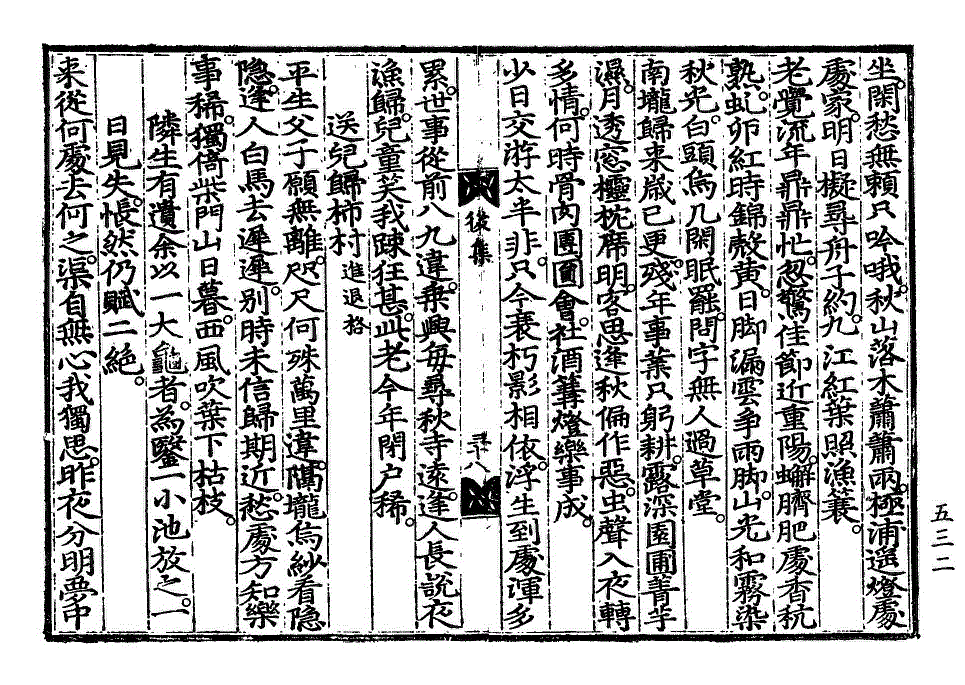 坐。閑愁無賴只吟哦。秋山落木蕭蕭雨。極浦遥燈處
處蒙。明日擬尋舟子約。九江紅葉照漁蓑。
老覺流年鼎鼎忙。忽驚佳節近重陽。蠏臍肥處香秔
熟。虬卵紅時錦殼黃。日脚漏雲爭雨脚。山光和霧染
秋光。白頭烏几閑眠罷。問字無人過草堂。
南壠歸来歲已更。殘年事業只躬耕。露深園圃菁芋
濕。月透窓欞枕席明。客思逢秋偏作惡。虫聲入夜轉
多情。何時骨肉團圝會。社酒篝燈樂事成。
少日交游太半非。只今衰朽影相依。浮生到處渾多
後集
累。世事從前八九違。乘興每尋秋寺遠。逢人長說夜
漁歸。兒童莫笑我踈狂甚。此老今年閉户稀。
送兒歸柿村 進退格
平生父子願無離。咫尺何殊萬里違。隴壠烏紗看隐
隐。逢人白馬去遲遲。别時未信歸期近。愁處方知樂
事稀。獨倚柴門山日暮。西風吹葉下枯枝。
隣生有遺余以一大龜者。為鑿一小池放之。一
日見失。悵然仍賦二絶。
来從何處去何之。渠自無心我獨思。昨夜分明夢中
五三二